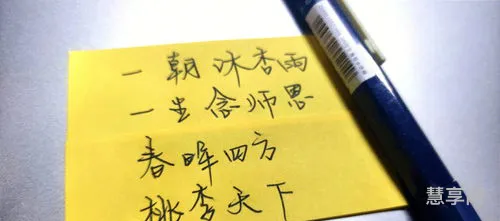 一朝沐杏雨
一生念师恩
春晖四方
桃李天下
慧享